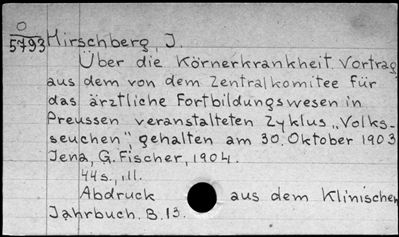 O
5793
Hirschberg, J.
Über die Körnerkrankheit. Vortrag
aus dem von dem Zentralkomitee für
das ärztliche Fortbildungswesen in
Preussen veranstalteten Zyklus „Volks-
seuchen", gehalten am 30. Oktober 1903
Jena, G. Fischer, 1904.
44 s., ill.
Abdruck aus dem Klinischen
Jahrbuch. B. 13.